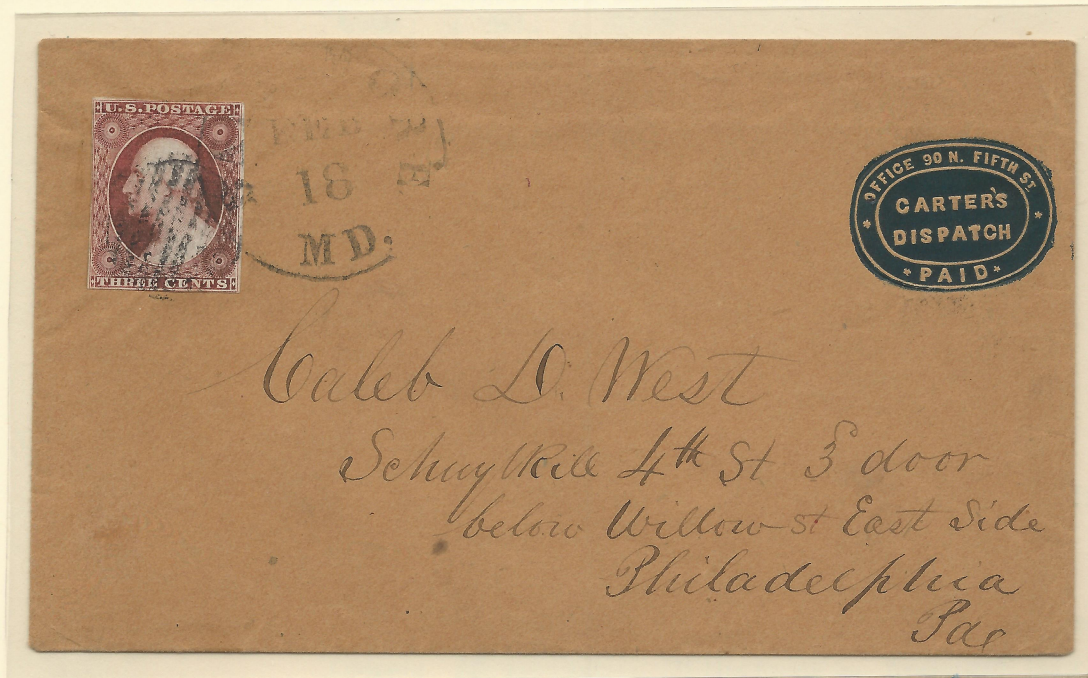 U.S. POSTAGE
THREE CENTS
18
MD.
OFFICE 90 N. FIFTH ST
CARTER'S
DISPATCH
PAID
Caleb D. West
Schuylkill 4th St 3 door
below Willow st East Side
Philadelphia
Pae